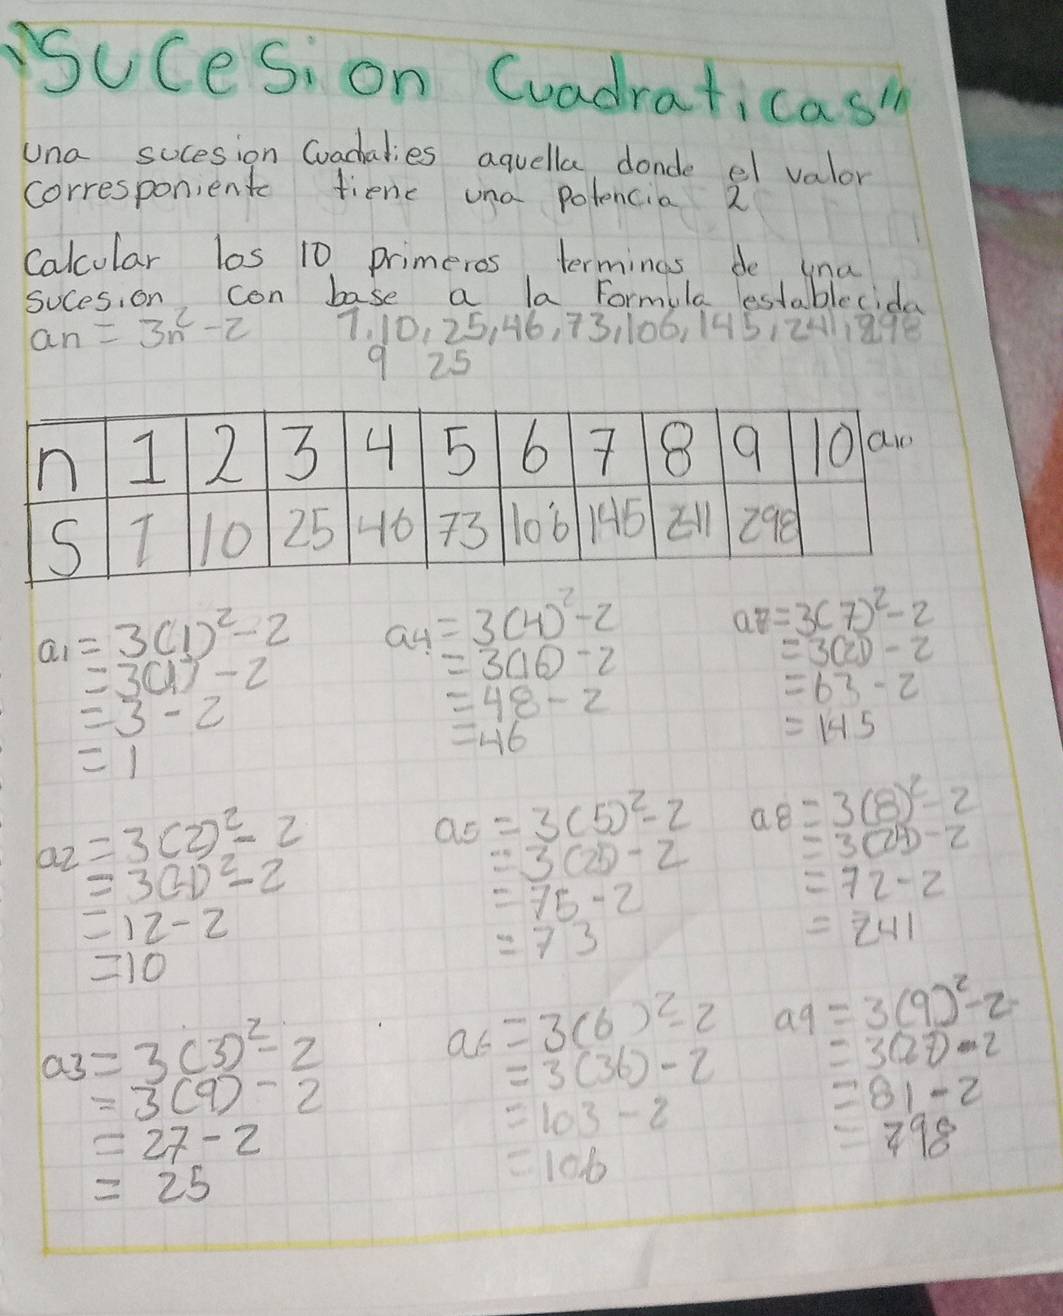 "Sucesion Cuadraticas"
una sucesion Cuadaties aquella donde el valor
corresponiente tiene una potencia 2
Calcular los 10 primeros terminos de una
sucesion con base a la Formula establecida
an = 3n² - 2 1, 10, 25, 46, 73, 106, 145, 241, 298
9 25
n 1 2 3 4 5 6 7 8 9 10 a10
S 1 10 25 46 73 106 145 241 298
a1 = 3(1)² - 2
= 3(1) - 2
= 3 - 2
= 1
a2 = 3(2)² - 2
= 3(4)² - 2
= 12 - 2
= 10
a3 = 3(3)² - 2
= 3(9) - 2
= 27 - 2
= 25
a4 = 3(4)² - 2
= 3(16) - 2
= 48 - 2
= 46
a5 = 3(5)² - 2
= 3(25) - 2
= 75 - 2
= 73
a6 = 3(6)² - 2
= 3(36) - 2
= 103 - 2
= 106
a7 = 3(7)² - 2
= 3(21) - 2
= 63 - 2
= 145
a8 = 3(8)² - 2
= 3(24) - 2
= 72 - 2
= 241
a9 = 3(9)² - 2
= 3(27) - 2
= 81 - 2
= 298